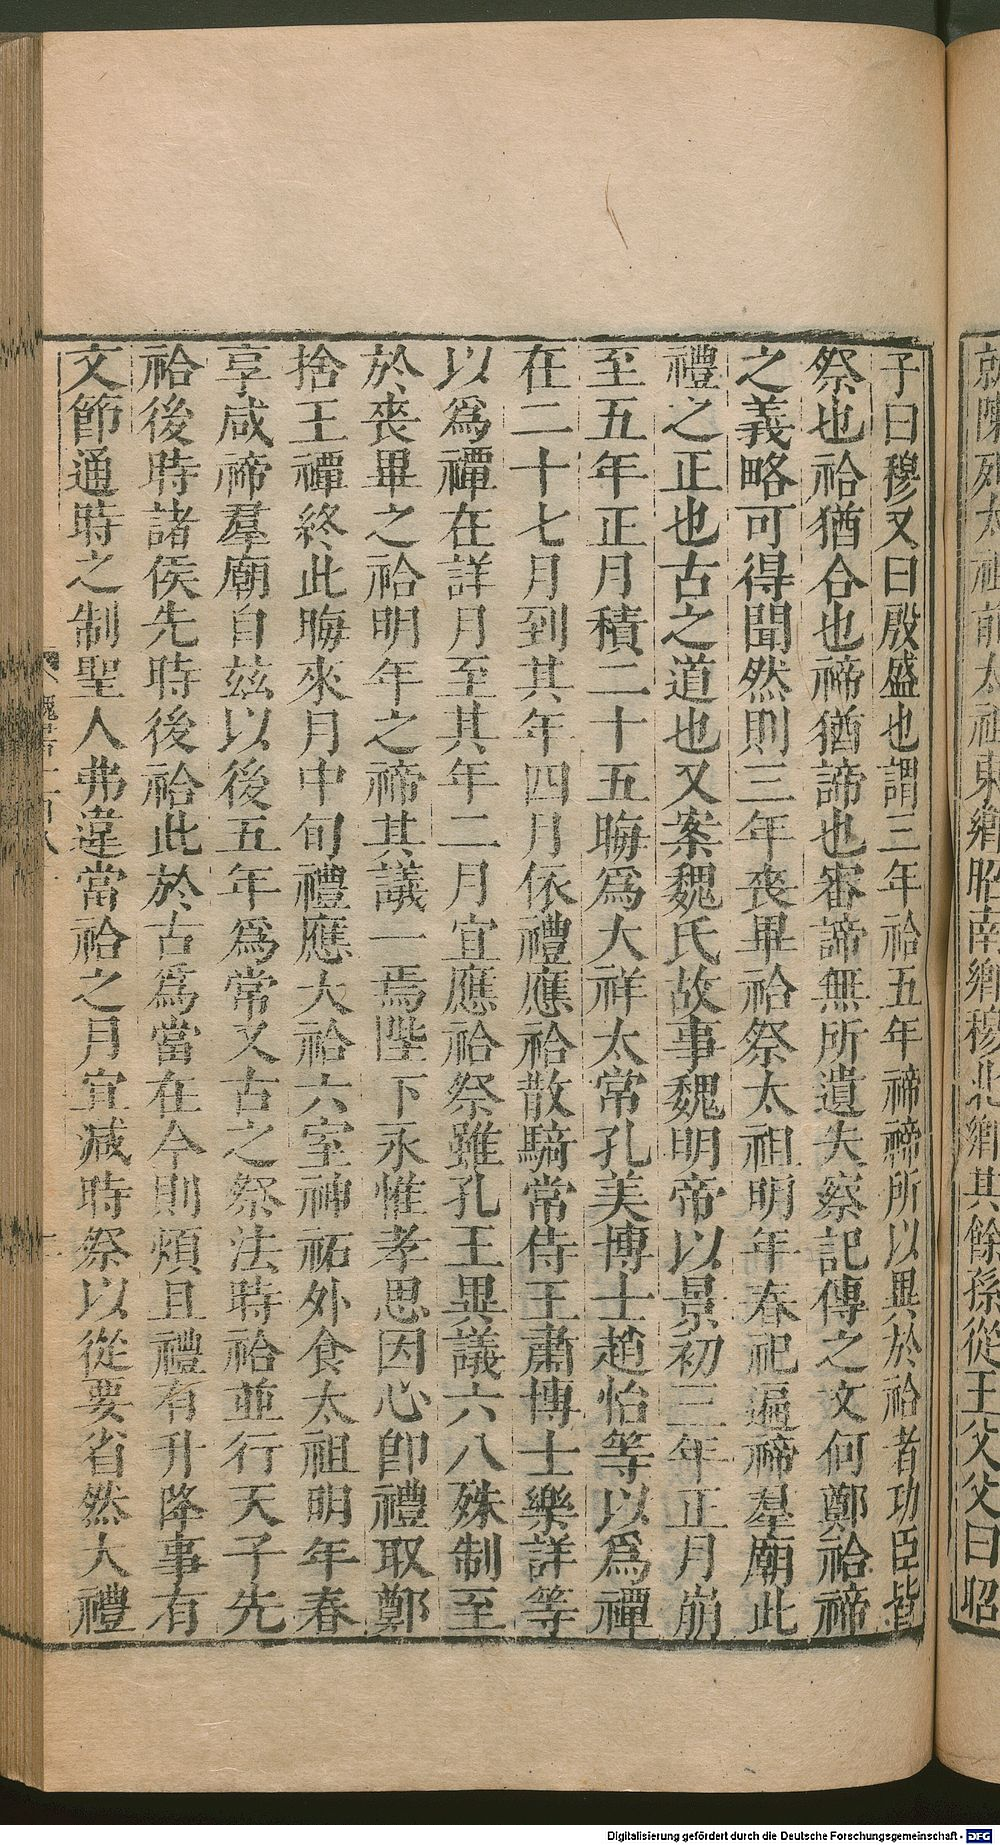 就陳列太祖前太祖東鄉昭南鄉穆北鄉其餘孫從王父父曰昭
子曰穆又曰殷盛也謂三年祫五年禘禘所以異於祫者功臣皆
祭也祫猶合也禘猶諦也審諦無所遺失察記傳之文何鄭祫禘
之義略可得聞然則三年喪畢祫祭太祖明年春祀遍禘羣廟此
禮之正也古之道也又案魏氏故事魏明帝以景初三年正月崩
至五年正月積二十五晦爲大祥太常孔美博士趙怡等以爲禫
在二十七月到其年四月依禮應祫散騎常侍王肅博士樂詳等
以爲禫在詳月至其年二月宜應祫祭雖孔王異議六八殊制至
於喪畢之祫明年之禘其議一焉陛下永惟孝思因心即禮取鄭
捨王禫終此晦來月中旬禮應大祫六室神祏外食太祖明年春
享咸禘羣廟自兹以後五年爲常又古之祭法時祫並行天子先
祫後時諸侯先時後祫此於古爲當在今則煩且禮有升降事有
文節通時之制聖人弗違當祫之月宜減時祭以從要省然大禮
魏書一百八